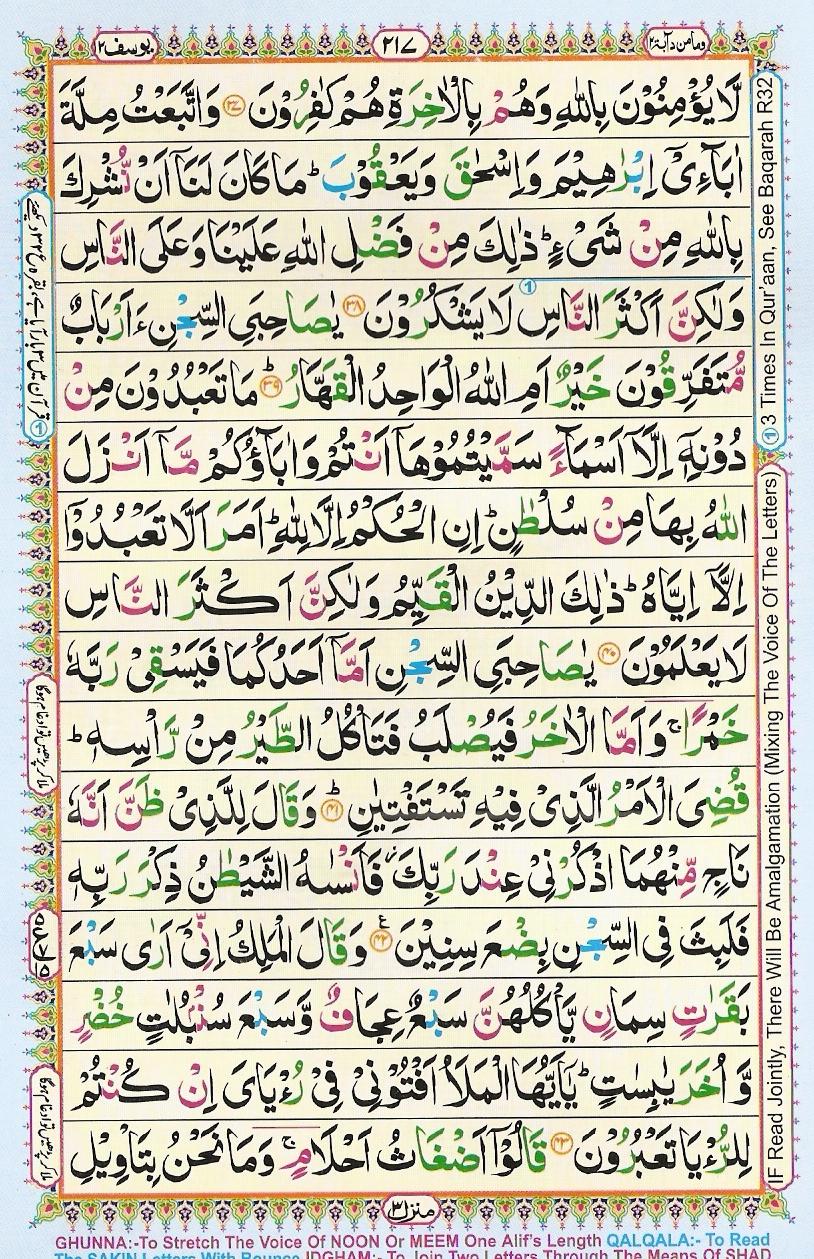 وما من دآبۃ ۱۲
۲۱۷
یوسف ۱۲
لَّا یُؤْمِنُوْنَ بِاللّٰهِ وَهُمْ بِالْاٰخِرَةِ هُمْ كٰفِرُوْنَ ﴿۳۷﴾ وَاتَّبَعْتُ مِلَّةَ
اٰبَآءِیْۤ اِبْرٰهِیْمَ وَاِسْحٰقَ وَیَعْقُوْبَ ؕ مَا كَانَ لَنَاۤ اَنْ نُّشْرِكَ
بِاللّٰهِ مِنْ شَیْءٍ ؕ ذٰلِكَ مِنْ فَضْلِ اللّٰهِ عَلَیْنَا وَعَلَی النَّاسِ
وَلٰكِنَّ اَكْثَرَ النَّاسِ لَا یَشْكُرُوْنَ ﴿۳۸﴾ یٰصَاحِبَیِ السِّجْنِ ءَاَرْبَابٌ
مُّتَفَرِّقُوْنَ خَیْرٌ اَمِ اللّٰهُ الْوَاحِدُ الْقَهَّارُ ﴿۳۹﴾ ؕ مَا تَعْبُدُوْنَ مِنْ
دُوْنِهٖۤ اِلَّاۤ اَسْمَآءً سَمَّیْتُمُوْهَاۤ اَنْتُمْ وَاٰبَآؤُكُمْ مَّاۤ اَنْزَلَ
اللّٰهُ بِهَا مِنْ سُلْطٰنٍ ؕ اِنِ الْحُكْمُ اِلَّا لِلّٰهِ ؕ اَمَرَ اَلَّا تَعْبُدُوْۤا
اِلَّاۤ اِیَّاهُ ؕ ذٰلِكَ الدِّیْنُ الْقَیِّمُ وَلٰكِنَّ اَكْثَرَ النَّاسِ
لَا یَعْلَمُوْنَ ﴿۴۰﴾ یٰصَاحِبَیِ السِّجْنِ اَمَّاۤ اَحَدُكُمَا فَیَسْقِیْ رَبَّهٗ
خَمْرًا ۚ وَاَمَّا الْاٰخَرُ فَیُصْلَبُ فَتَاْكُلُ الطَّیْرُ مِنْ رَّاْسِهٖ ؕ
قُضِیَ الْاَمْرُ الَّذِیْ فِیْهِ تَسْتَفْتِیٰنِ ﴿۴۱﴾ ؕ وَقَالَ لِلَّذِیْ ظَنَّ اَنَّهٗ
نَاجٍ مِّنْهُمَا اذْكُرْنِیْ عِنْدَ رَبِّكَ ؗ فَاَنْسٰىهُ الشَّیْطٰنُ ذِكْرَ رَبِّهٖ
فَلَبِثَ فِی السِّجْنِ بِضْعَ سِنِیْنَ ﴿۴۲﴾ ع وَقَالَ الْمَلِكُ اِنِّیْۤ اَرٰی سَبْعَ
بَقَرٰتٍ سِمَانٍ یَّاْكُلُهُنَّ سَبْعٌ عِجَافٌ وَّسَبْعَ سُنْۢبُلٰتٍ خُضْرٍ
وَّ اُخَرَ یٰبِسٰتٍ ؕ یٰۤاَیُّهَا الْمَلَاُ اَفْتُوْنِیْ فِیْ رُءْیَایَ اِنْ كُنْتُمْ
لِلرُّءْیَا تَعْبُرُوْنَ ﴿۴۳﴾ قَالُوْۤا اَضْغَاثُ اَحْلَامٍ ۚ وَمَا نَحْنُ بِتَاْوِیْلِ
منزل ۳
① 3 Times In Qur'aan, See Baqarah R32
IF Read Jointly, There Will Be Amalgamation (Mixing The Voice Of The Letters)
ملا کر پڑھیں تو ادغام ہوگا
ملا کر پڑھیں تو ادغام ہوگا
GHUNNA:-To Stretch The Voice Of NOON Or MEEM One Alif's Length QALQALA:- To Read
The SAKIN Letters With Bounce IDGHAM:- To Join Two Letters Through The Means Of SHAD